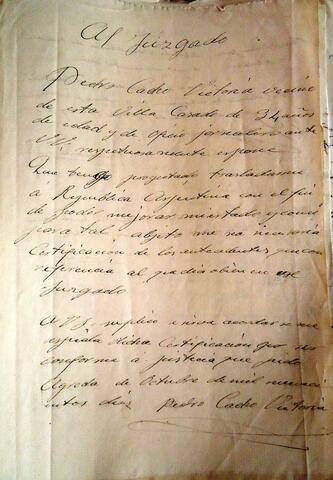 Al Juzgado
Pedro Cacho Victoria vecino
de esta Villa Casado de 34 años
de edad y de oficio jornalero ante
V.I. respetuosamente expone
Que tengo proyectado trasladarme
á Republica Argentina con el fin
de poder mejorar mi estado y como
para tal objeto me es necesaria
Certificacion de los antecedentes que con
referencia al que dice obien en ese
Juzgado
A V.I. suplico se sirva acordar se me
expida dicha Certificacion por ser
conforme á justicia que pido
Agreda de Octubre de mil novecie
ntos diez Pedro Cacho Victoria